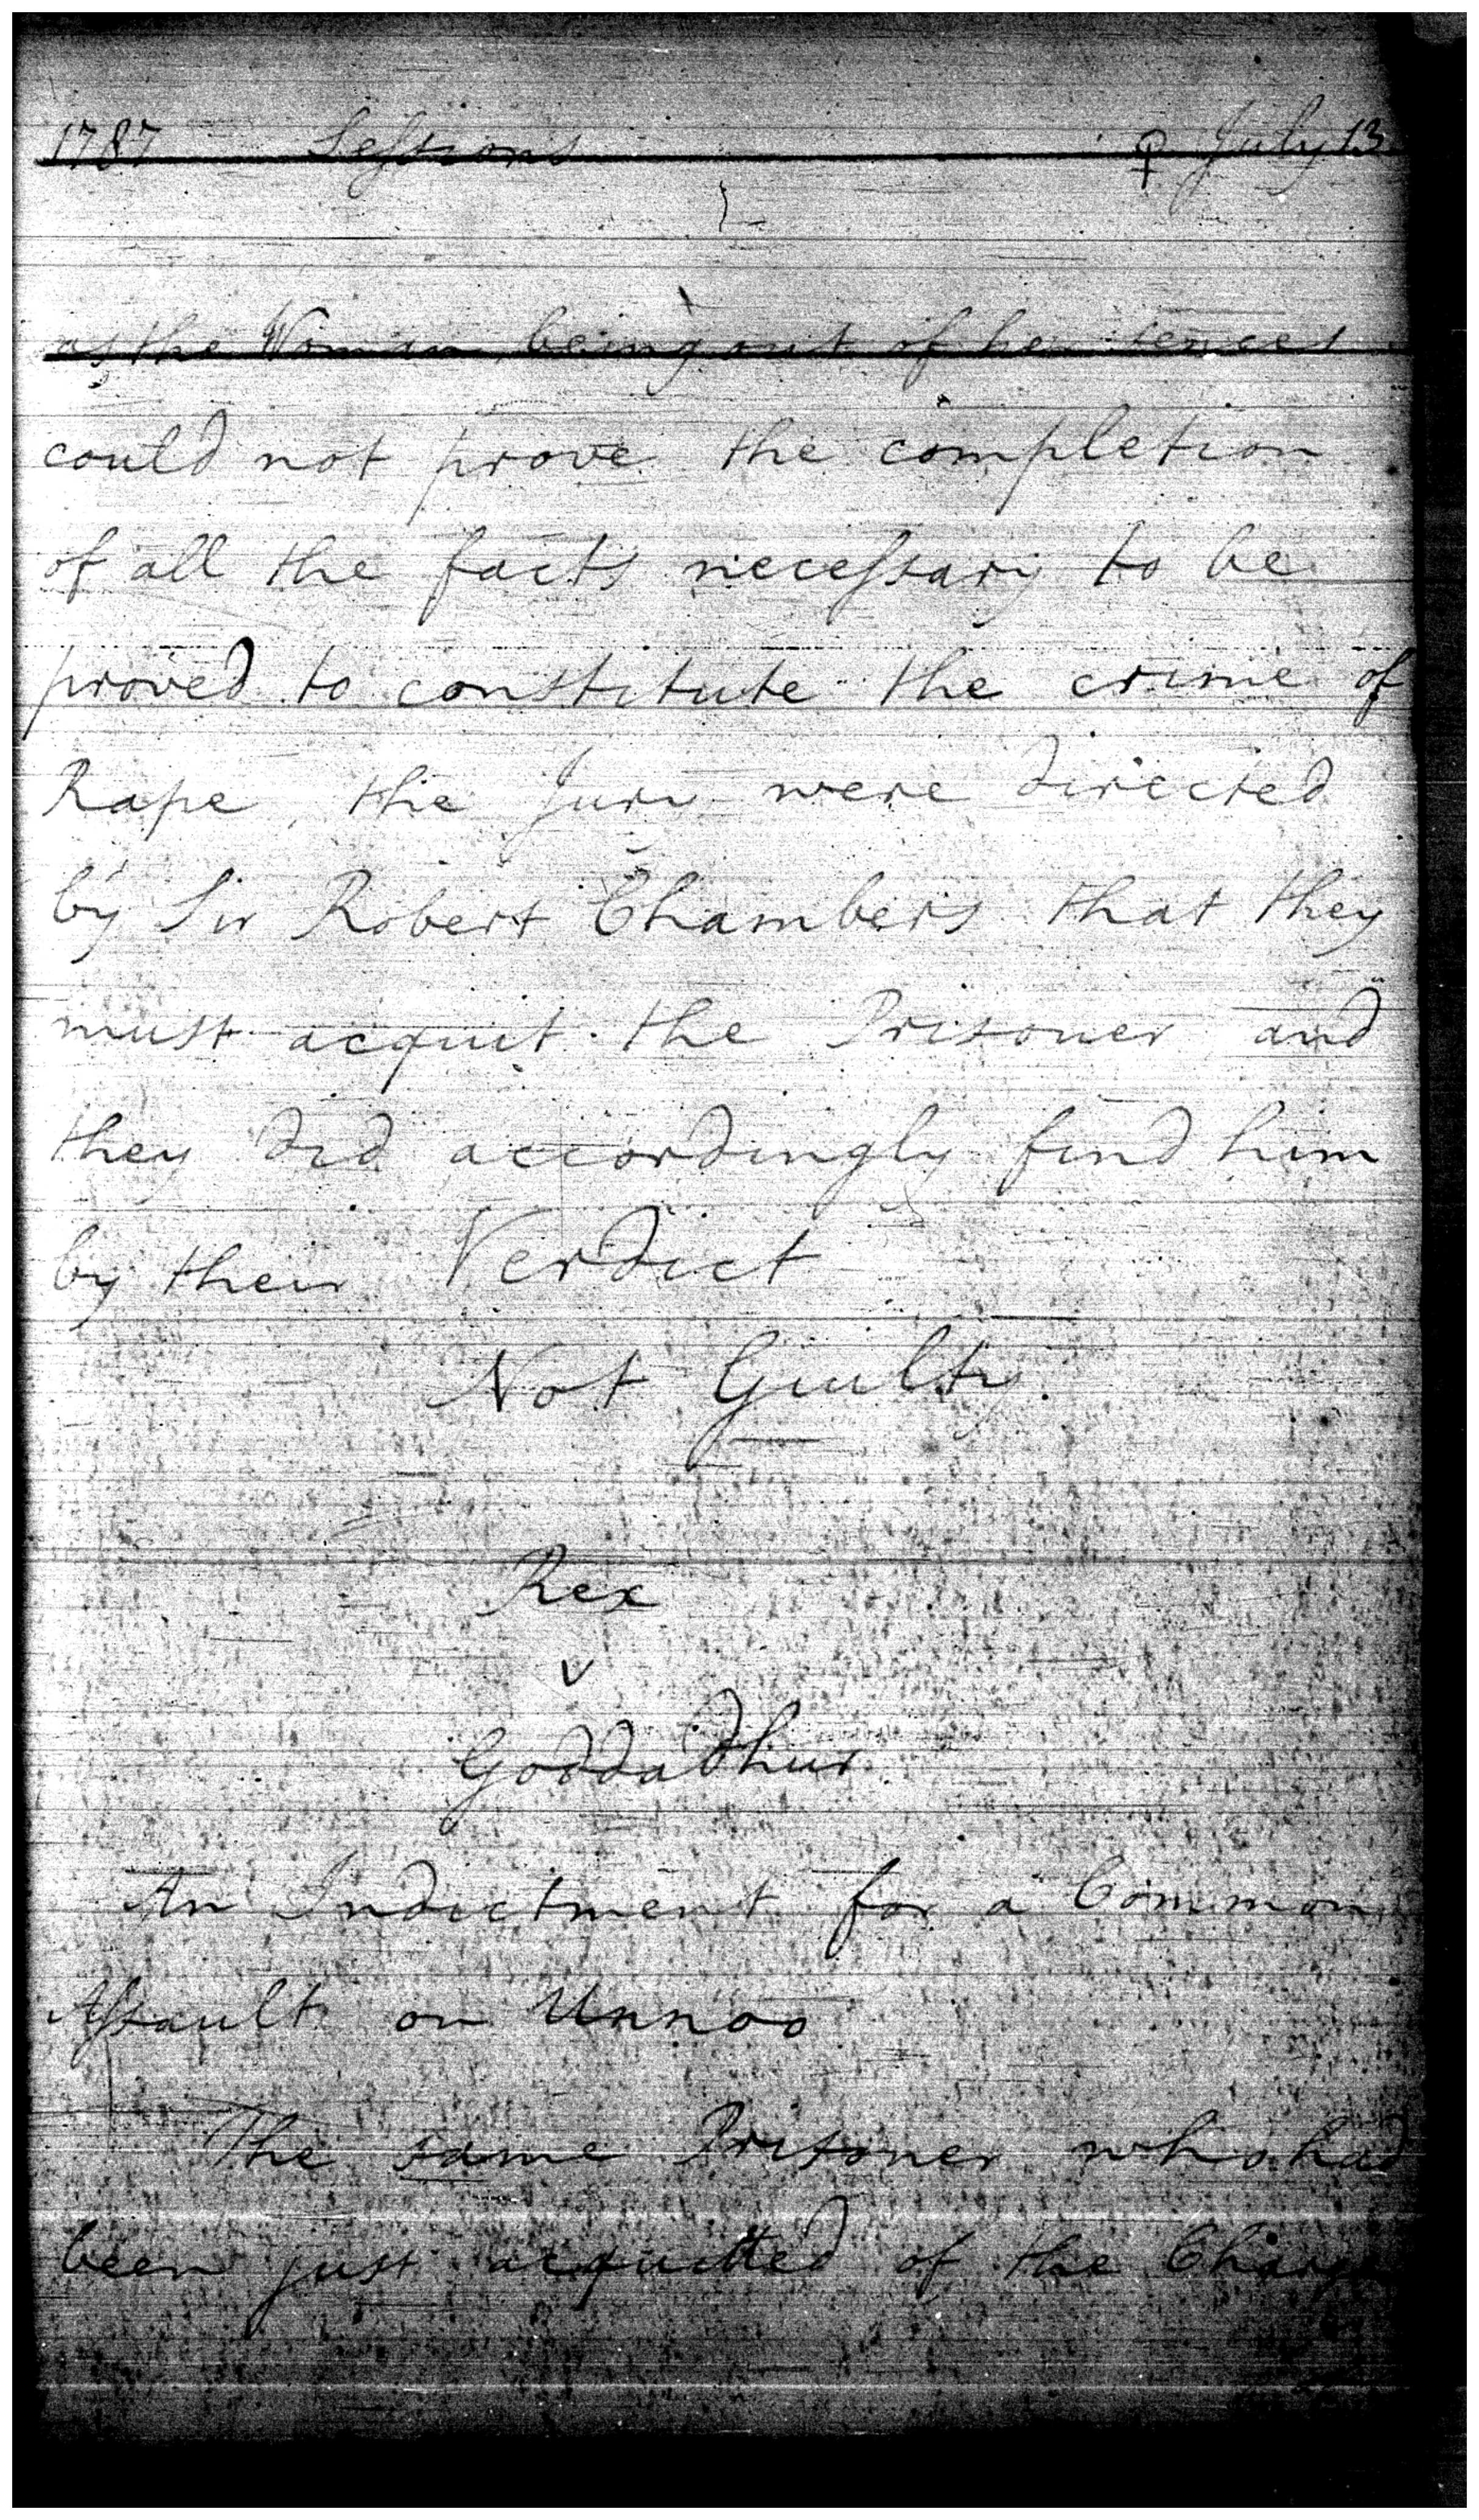 1787 Sessions ♀ July 13
as the Woman being out of her sences
could not prove the completion
of all the facts necessary to be
proved to constitute the crime of
Rape, the Jury were directed
by Sir Robert Chambers that they
must acquit the Prisoner and
they did accordingly find him
by their Verdict
Not Guilty.
Rex
v
Goddadhur
An Indictment for a Common
Assault on Unnoo
The same Prisoner who had
been just acquitted of the Charge